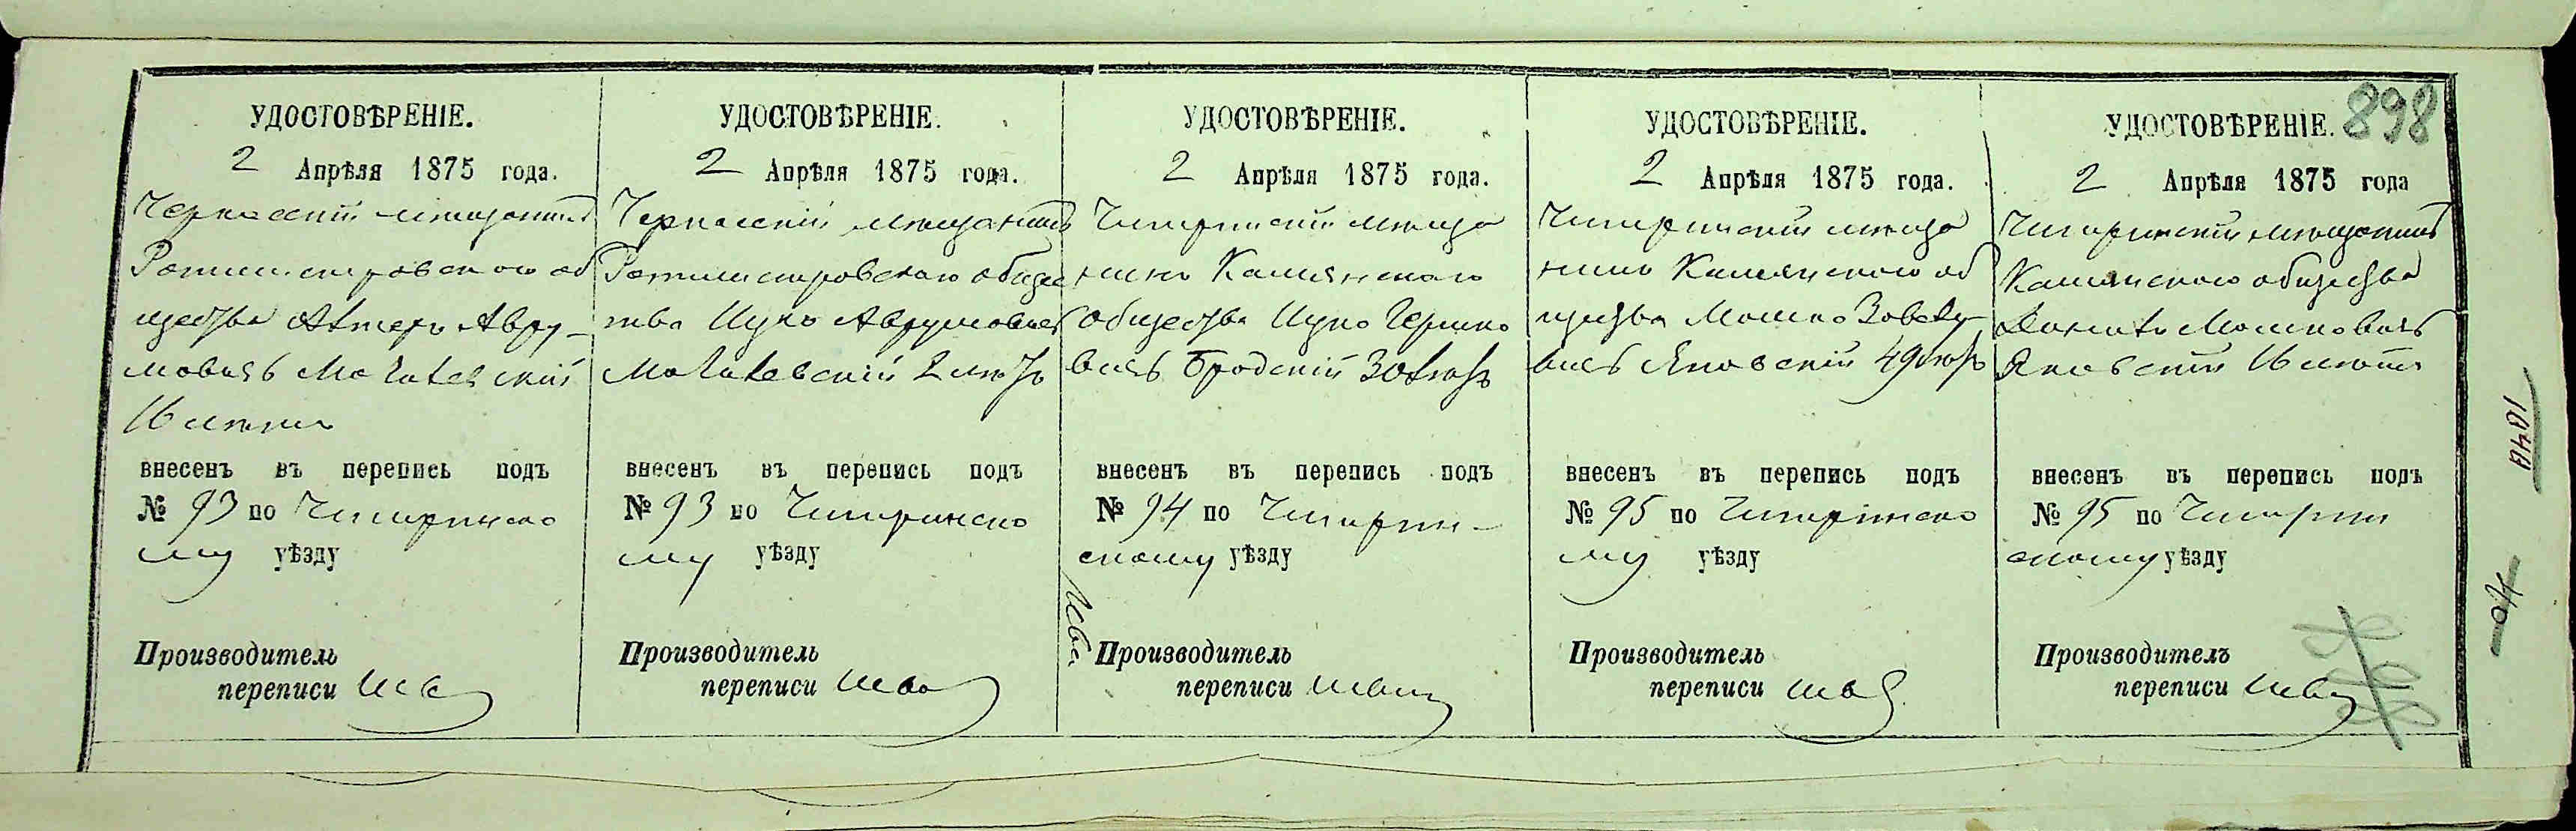 898
УДОСТОВѢРЕНІЕ.
2 Апрѣля 1875 года.
Черкасскій мещанинъ
Ротмистровскаго об
щества
мовичъ
внесенъ въ перепись подъ
№ 93 по Чигиринско
му уѣзду
Производитель
переписи
УДОСТОВѢРЕНІЕ.
2 Апрѣля 1875 года.
Черкасскій мещанинъ
Ротмистровскаго общес
тва Ицко Аврумовичъ
внесенъ въ перепись подъ
№ 93 по Чигиринско
му уѣзду
Производитель
переписи
УДОСТОВѢРЕНІЕ.
2 Апрѣля 1875 года.
Чигиринскій меща
нинъ Камянскаго
общества Ицко Гершко
вичъ Бродскій 30 лѣтъ
внесенъ въ перепись подъ
№ 94 по Чигирин-
скому уѣзду
Производитель
переписи
УДОСТОВѢРЕНІЕ.
2 Апрѣля 1875 года.
Чигиринскій меща
нинъ Камянскаго об
щества Мошко
вичъ Яновскій 49 лѣтъ
внесенъ въ перепись подъ
№ 95 по Чигиринско
му уѣзду
Производитель
переписи
УДОСТОВѢРЕНІЕ.
2 Апрѣля 1875 года
Чигиринскій мещанинъ
Камянскаго общества
Мошковичъ
Яновскій 16 лѣтъ
внесенъ въ перепись подъ
№ 95 по Чигирин
скому уѣзду
Производитель
переписи